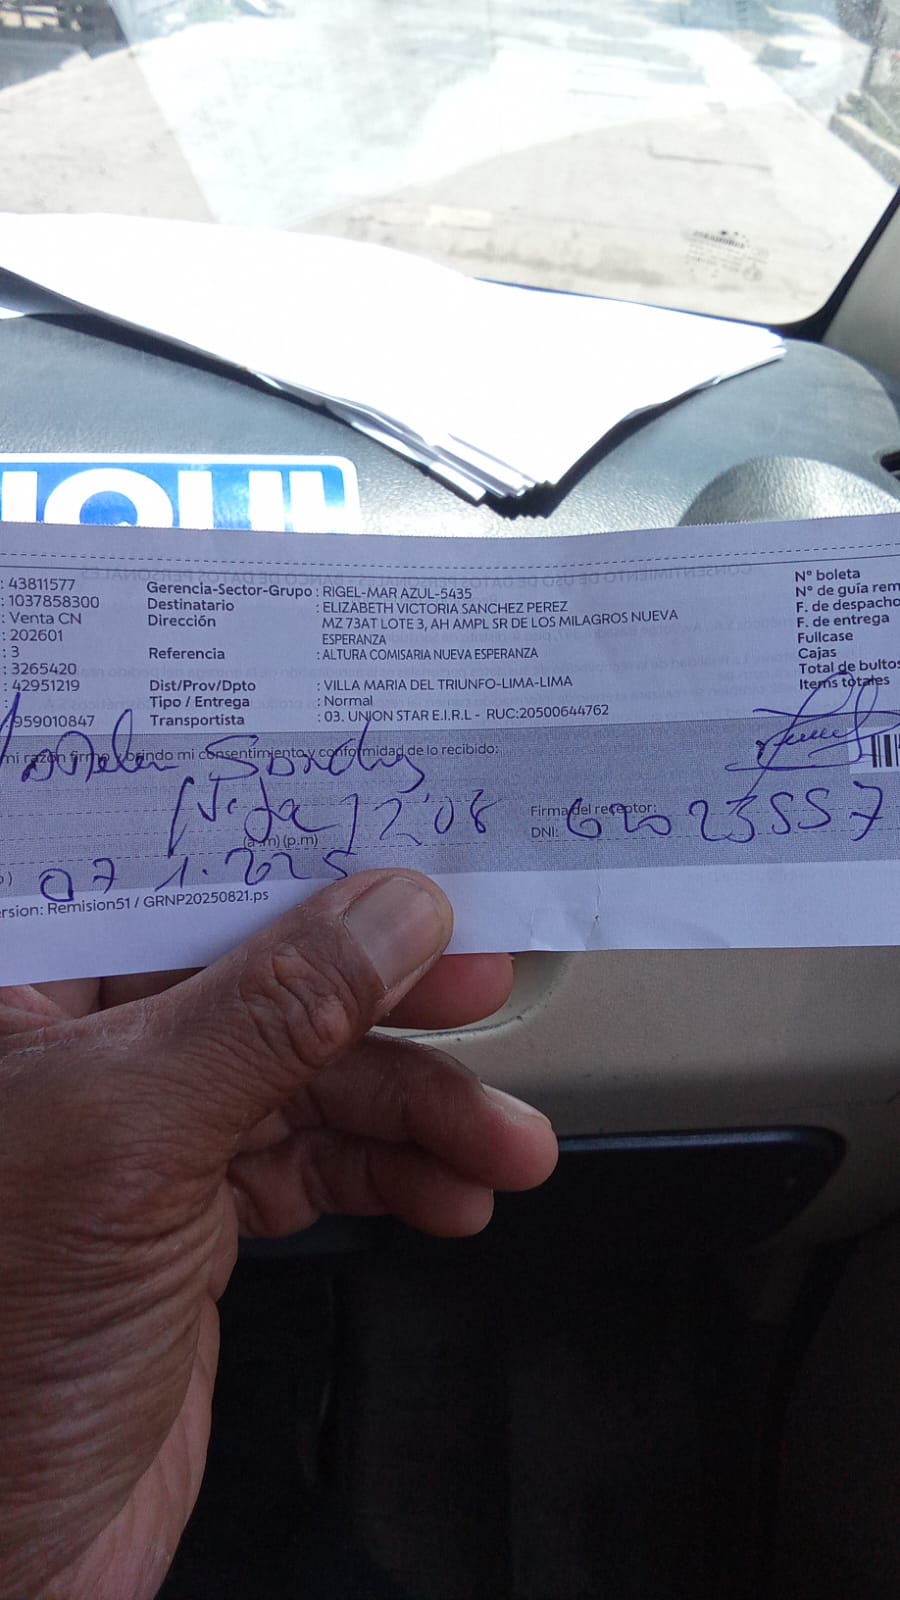 : 43811577
: 1037858300
: Venta CN
: 202601
: 3
: 3265420
: 42951219
:
: 959010847
Gerencia-Sector-Grupo : RIGEL-MAR AZUL-5435
Destinatario : ELIZABETH VICTORIA SANCHEZ PEREZ
Dirección MZ 73AT LOTE 3, AH AMPL SR DE LOS MILAGROS NUEVA
ESPERANZA
Referencia : ALTURA COMISARIA NUEVA ESPERANZA
Dist/Prov/Dpto : VILLA MARIA DEL TRIUNFO-LIMA-LIMA
Tipo / Entrega : Normal
Transportista : 03. UNION STAR E.I.R.L - RUC:20500644762
N° boleta
N° de guía rem
F. de despacho
F. de entrega
Fullcase
Cajas
Total de bultos
Items totales
mi razón firmo y brindo mi consentimiento y conformidad de lo recibido:
12'08
(a.m) (p.m)
Firma del receptor:
DNI:
07 1.
rsion: Remision51 / GRNP20250821.ps